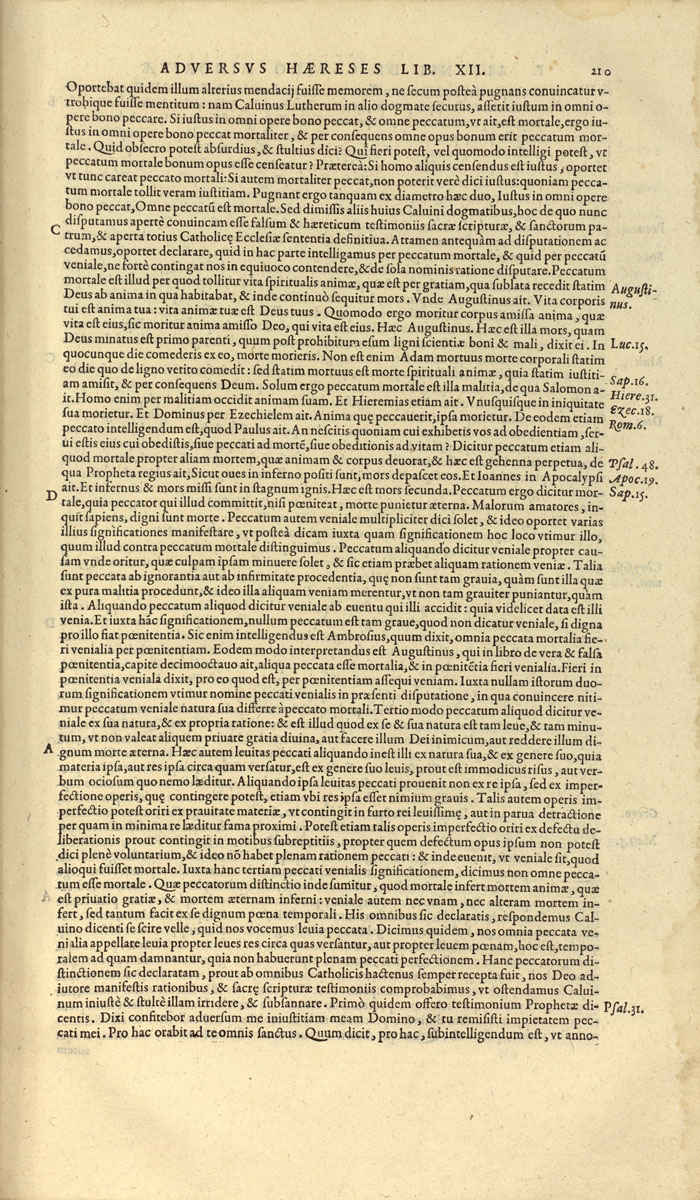 ADVERSVS HÆRESES LIB. XII. 210
Oportebat quidem illum alterius mendacij fuisse memorem, ne secum posteà pugnans conuincatur v-
trobique fuisse mentitum: nam Caluinus Lutherum in alio dogmate secutus, asserit iustum in omni o-
pere bono peccare. Si iustus in omni opere bono peccat, & omne peccatum, vt ait, est mortale, ergo iu-
stus in omni opere bono peccat mortaliter, & per consequens omne opus bonum erit peccatum mor-
tale. Quid obsecro potest absurdius, & stultius dici? Qui fieri potest, vel quomodo intelligi potest, vt
peccatum mortale bonum opus esse censeatur? Præterea: Si homo aliquis censendus est iustus, oportet
vt tunc careat peccato mortali: Si autem mortaliter peccat, non poterit verè dici iustus: quoniam pecca-
tum mortale tollit veram iustitiam. Pugnant ergo tanquam ex diametro hæc duo, Iustus in omni opere
bono peccat, Omne peccatũ est mortale. Sed dimissis aliis huius Caluini dogmatibus, hoc de quo nunc
C disputamus apertè conuincam esse falsum & hæreticum testimoniis sacræ scripturæ, & sanctorum pa-
trum, & aperta totius Catholicę Ecclesiæ sententia definitiua. Attamen antequàm ad disputationem ac
cedamus, oportet declarare, quid in hac parte intelligamus per peccatum mortale, & quid per peccatũ
veniale, ne fortè contingat nos in equiuoco contendere, & de sola nominis ratione disputare. Peccatum
mortale est illud per quod tollitur vita spiritualis animæ, quæ est per gratiam, qua sublata recedit statim
Deus ab anima in qua habitabat, & inde continuò sequitur mors. Vnde Augustinus ait. Vita corporis Augusti-
tui est anima tua: vita animæ tuæ est Deus tuus. Quomodo ergo moritur corpus amissa anima, quæ nus.
vita est eius, sic moritur anima amisso Deo, qui vita est eius. Hæc Augustinus. Hæc est illa mors, quam
Deus minatus est primo parenti, quum post prohibitum esum ligni scientiæ boni & mali, dixit ei. In Luc.15.
quocunque die comederis ex eo, morte morieris. Non est enim Adam mortuus morte corporali statim
eo die quo de ligno vetito comedit: sed statim mortuus est morte spirituali animæ, quia statim iustiti-
am amisit, & per consequens Deum. Solum ergo peccatum mortale est illa malitia, de qua Salomon a- Sap.16.
it. Homo enim per malitiam occidit animam suam. Et Hieremias etiam ait. Vnusquisque in iniquitate Hiere.31.
sua morietur. Et Dominus per Ezechielem ait. Anima quę peccauerit, ipsa morietur. De eodem etiam Ezec.18.
peccato intelligendum est, quod Paulus ait. An nescitis quoniam cui exhibetis vos ad obedientiam, ser- Rom.6.
ui estis eius cui obedistis, siue peccati ad mortẽ, siue obeditionis ad vitam? Dicitur peccatum etiam ali-
quod mortale propter aliam mortem, quæ animam & corpus deuorat, & hæc est gehenna perpetua, de Psal.48.
qua Propheta regius ait, Sicut oues in inferno positi sunt, mors depascet eos. Et Ioannes in Apocalypsi Apoc.19.
D ait. Et infernus & mors missi sunt in stagnum ignis. Hæc est mors secunda. Peccatum ergo dicitur mor- Sap.15.
tale, quia peccator qui illud committit, nisi pœniteat, morte punietur æterna. Malorum amatores, in-
quit sapiens, digni sunt morte. Peccatum autem veniale multipliciter dici solet, & ideo oportet varias
illius significationes manifestare, vt posteà dicam iuxta quam significationem hoc loco vtimur illo,
quum illud contra peccatum mortale distinguimus. Peccatum aliquando dicitur veniale propter cau-
sam vnde oritur, quæ culpam ipsam minuere solet, & sic etiam præbet aliquam rationem veniæ. Talia
sunt peccata ab ignorantia aut ab infirmitate procedentia, quę non sunt tam grauia, quàm sunt illa quæ
ex pura malitia procedunt, & ideo illa aliquam veniam merentur, vt non tam grauiter puniantur, quàm
ista. Aliquando peccatum aliquod dicitur veniale ab euentu qui illi accidit: quia videlicet data est illi
venia. Et iuxta hãc significationem, nullum peccatum est tam graue, quod non dicatur veniale, si digna
pro illo fiat pœnitentia. Sic enim intelligendus est Ambrosius, quum dixit, omnia peccata mortalia fie-
ri venialia per pœnitentiam. Eodem modo interpretandus est Augustinus, qui in libro de vera & falsa
pœnitentia, capite decimooctauo ait, aliqua peccata esse mortalia, & in pœnitẽtia fieri venialia. Fieri in
pœnitentia venialia dixit, pro eo quod est, per pœnitentiam assequi veniam. Iuxta nullam istorum duo-
rum significationem vtimur nomine peccati venialis in præsenti disputatione, in qua conuincere niti-
mur peccatum veniale natura sua differre à peccato mortali. Tertio modo peccatum aliquod dicitur ve-
niale ex sua natura, & ex propria ratione: & est illud quod ex se & sua natura est tam leue, & tam minu-
tum, vt non valeat aliquem priuare gratia diuina, aut facere illum Dei inimicum, aut reddere illum di-
A gnum morte æterna. Hæc autem leuitas peccati aliquando inest illi ex natura sua, & ex genere suo, quia
materia ipsa, aut res ipsa circa quam versatur, est ex genere suo leuis, prout est immodicus risus, aut ver-
bum ociosum quo nemo læditur. Aliquando ipsa leuitas peccati prouenit non ex re ipsa, sed ex imper-
fectione operis, quę contingere potest, etiam vbi res ipsa esset nimium grauis. Talis autem operis im-
perfectio potest oriri ex prauitate materiæ, vt contingit in furto rei leuissimę, aut in parua detractione
per quam in minima re læditur fama proximi. Potest etiam talis operis imperfectio oriri ex defectu de-
liberationis prout contingit in motibus subreptitiis, propter quem defectum opus ipsum non potest
dici plenè voluntarium, & ideo nõ habet plenam rationem peccati: & inde euenit, vt veniale sit, quod
alioqui fuisset mortale. Iuxta hanc tertiam peccati venialis significationem, dicimus non omne pecca-
tum esse mortale. Quæ peccatorum distinctio inde sumitur, quod mortale infert mortem animæ, quæ
est priuatio gratiæ, & mortem æternam inferni: veniale autem nec vnam, nec alteram mortem in-
fert, sed tantum facit ex se dignum pœna temporali. His omnibus sic declaratis, respondemus Cal-
uino dicenti se scire velle, quid nos vocemus leuia peccata. Dicimus quidem, nos omnia peccata ve-
nialia appellare leuia propter leues res circa quas versantur, aut propter leuem pœnam, hoc est, tempo-
ralem ad quam damnantur, quia non habuerunt plenam peccati perfectionem. Hanc peccatorum di-
stinctionem sic declaratam, prout ab omnibus Catholicis hactenus semper recepta fuit, nos Deo ad-
iutore manifestis rationibus, & sacrę scripturæ testimoniis comprobabimus, vt ostendamus Calui-
num iniustè & stultè illam irridere, & subsannare. Primò quidem offero testimonium Prophetæ di- Psal.31.
centis. Dixi confitebor aduersum me iniustitiam meam Domino, & tu remisisti impietatem pec-
cati mei. Pro hac orabit ad te omnis sanctus. Quum dicit, pro hac, subintelligendum est, vt anno-